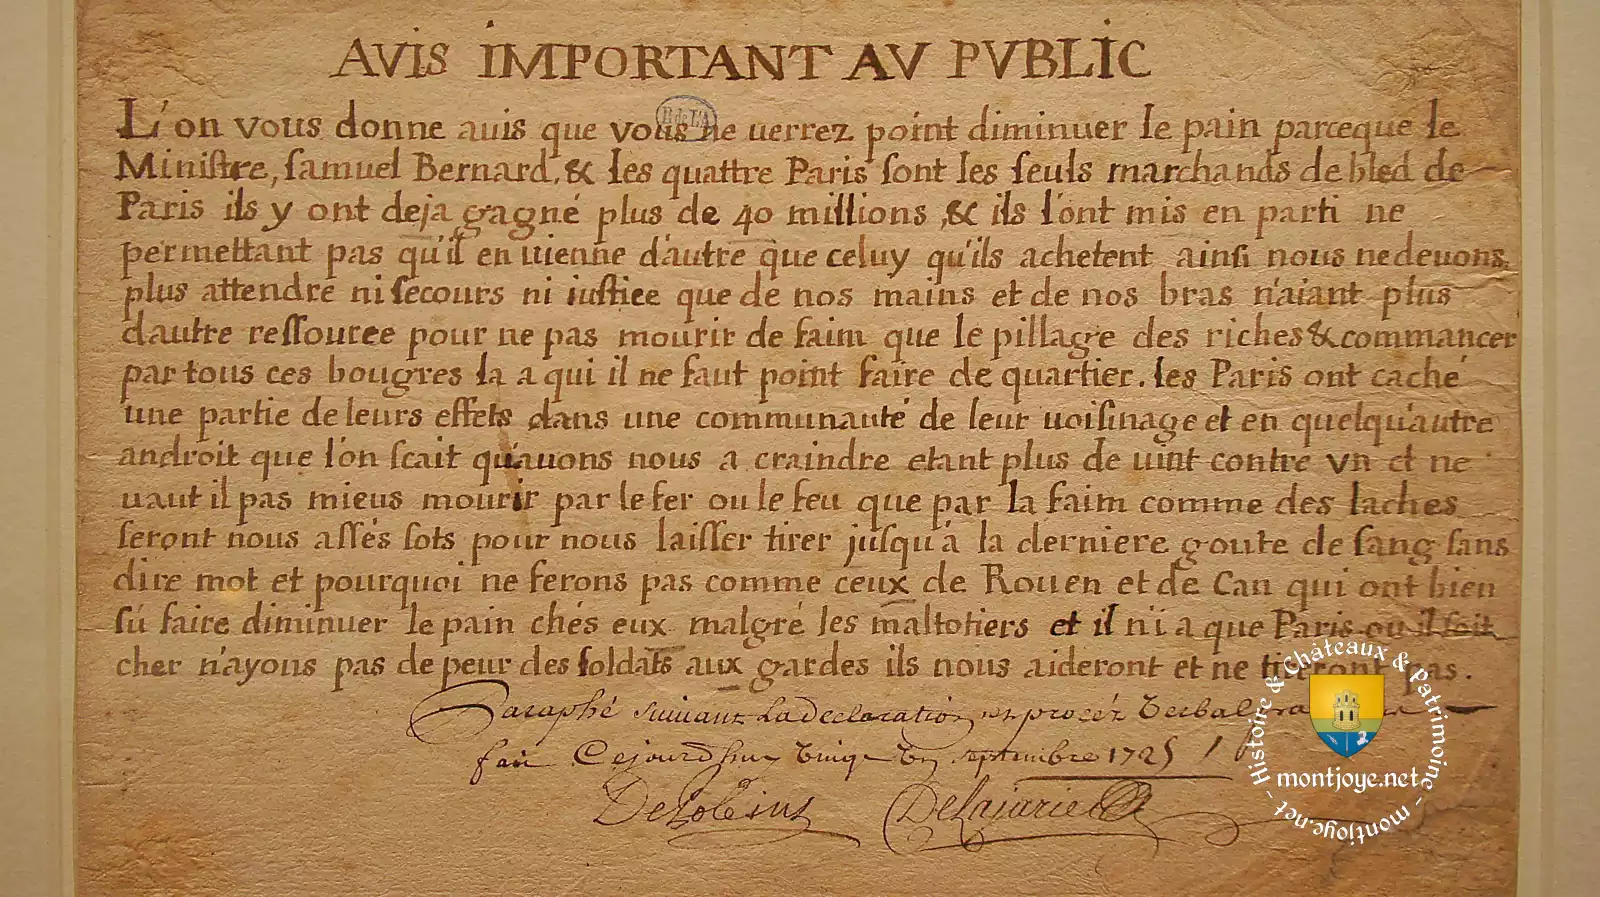 AVIS IMPORTANT AV PVBLIC
L'on vous donne auis que vous ne uerrez point diminuer le pain parceque le
Miniſtre, ſamuel Bernard, & les quattre Paris ſont les ſeuls marchands de bled de
Paris ils y ont deja gagné plus de 40 millions, & ils l'ont mis en parti ne
permettant pas qu'il en uienne d'autre que celuy qu'ils achetent ainſi nous ne deuons
plus attendre ni ſecours ni iuſtice que de nos mains et de nos bras n'aiant plus
d'autre reſſource pour ne pas mourir de faim que le pillage des riches & commancer
par tous ces bougres la a qui il ne faut point faire de quartier. les Paris ont caché
une partie de leurs effets dans une communauté de leur uoiſinage et en quelqu'autre
androit que l'on ſcait qu'auons nous a craindre etant plus de uint contre vn et ne
uaut il pas mieus mourir par le fer ou le feu que par la faim comme des laches
ſeront nous aſſés ſots pour nous laiſſer tirer juſqu'à la derniere goute de ſang ſans
dire mot et pourquoi ne ferons pas comme ceux de Rouen et de Can qui ont bien
ſú faire diminuer le pain chés eux malgré les maltotiers et il n'i a que Paris ou il ſoit
cher n'ayons pas de peur des ſoldats aux gardes ils nous aideront et ne tireront pas.
Paraphé suiuant la declaration et procez Verbal
fait Cejourdhuy septembre 1725
DeLajarie
B de L'A
Histoire & Châteaux & patrimoine - montjoye.net -
montjoye.net